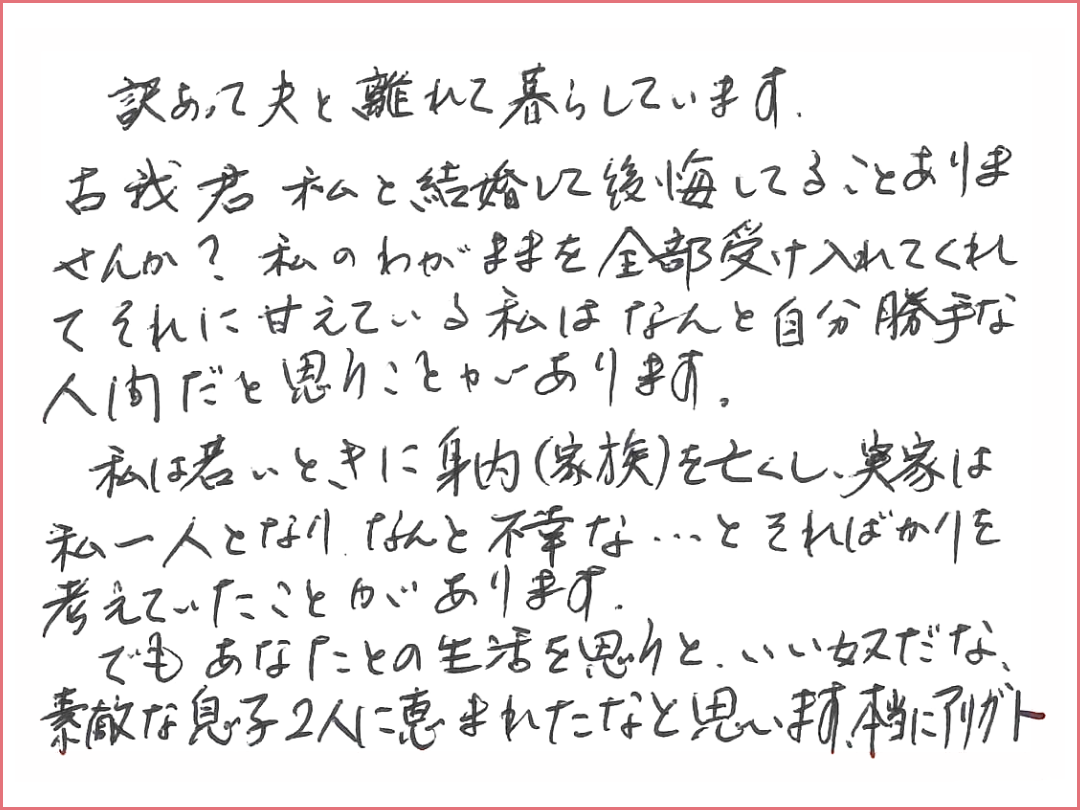 訳あって夫と離れて暮らしています.
古我君 私と結婚して後悔してることありま
せんか? 私のわがままを全部受け入れてくれ
てそれに甘えている私はなんと自分勝手な
人間だと思うことがあります。
私は若いときに身内(家族)を亡くし、実家は
私一人となり、なんと不幸な…とそればかりを
考えていたことがあります.
でもあなたとの生活を思うと、いい奴だな、
素敵な息子2人に恵まれたなと思います、本当にアリガトー